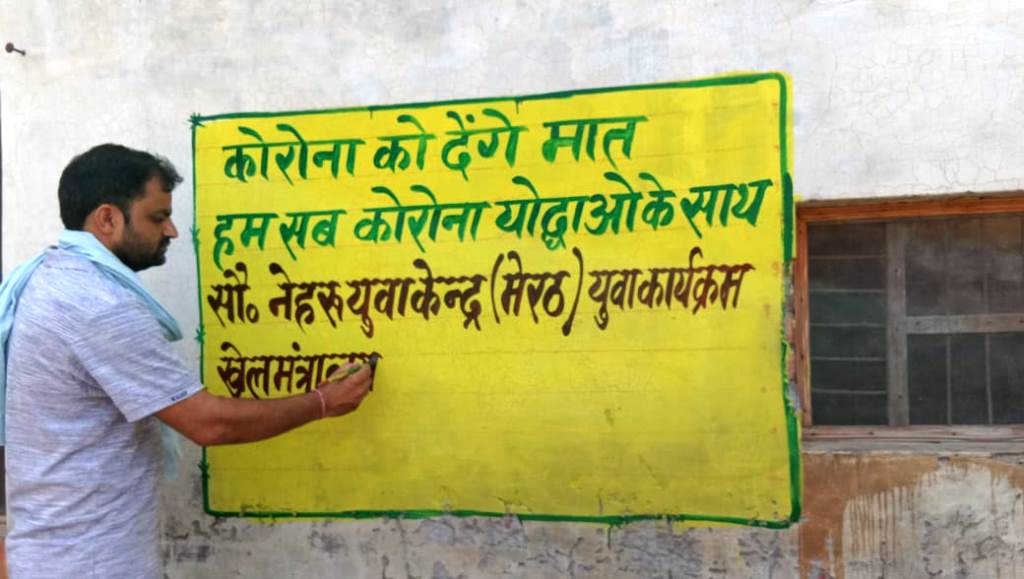 कोरोना को देंगे मात
हम सब कोरोना योद्धाओ के साथ
सौ० नेहरु युवा केन्द्र (मेरठ) युवा कार्यक्रम
खेल मंत्रालय